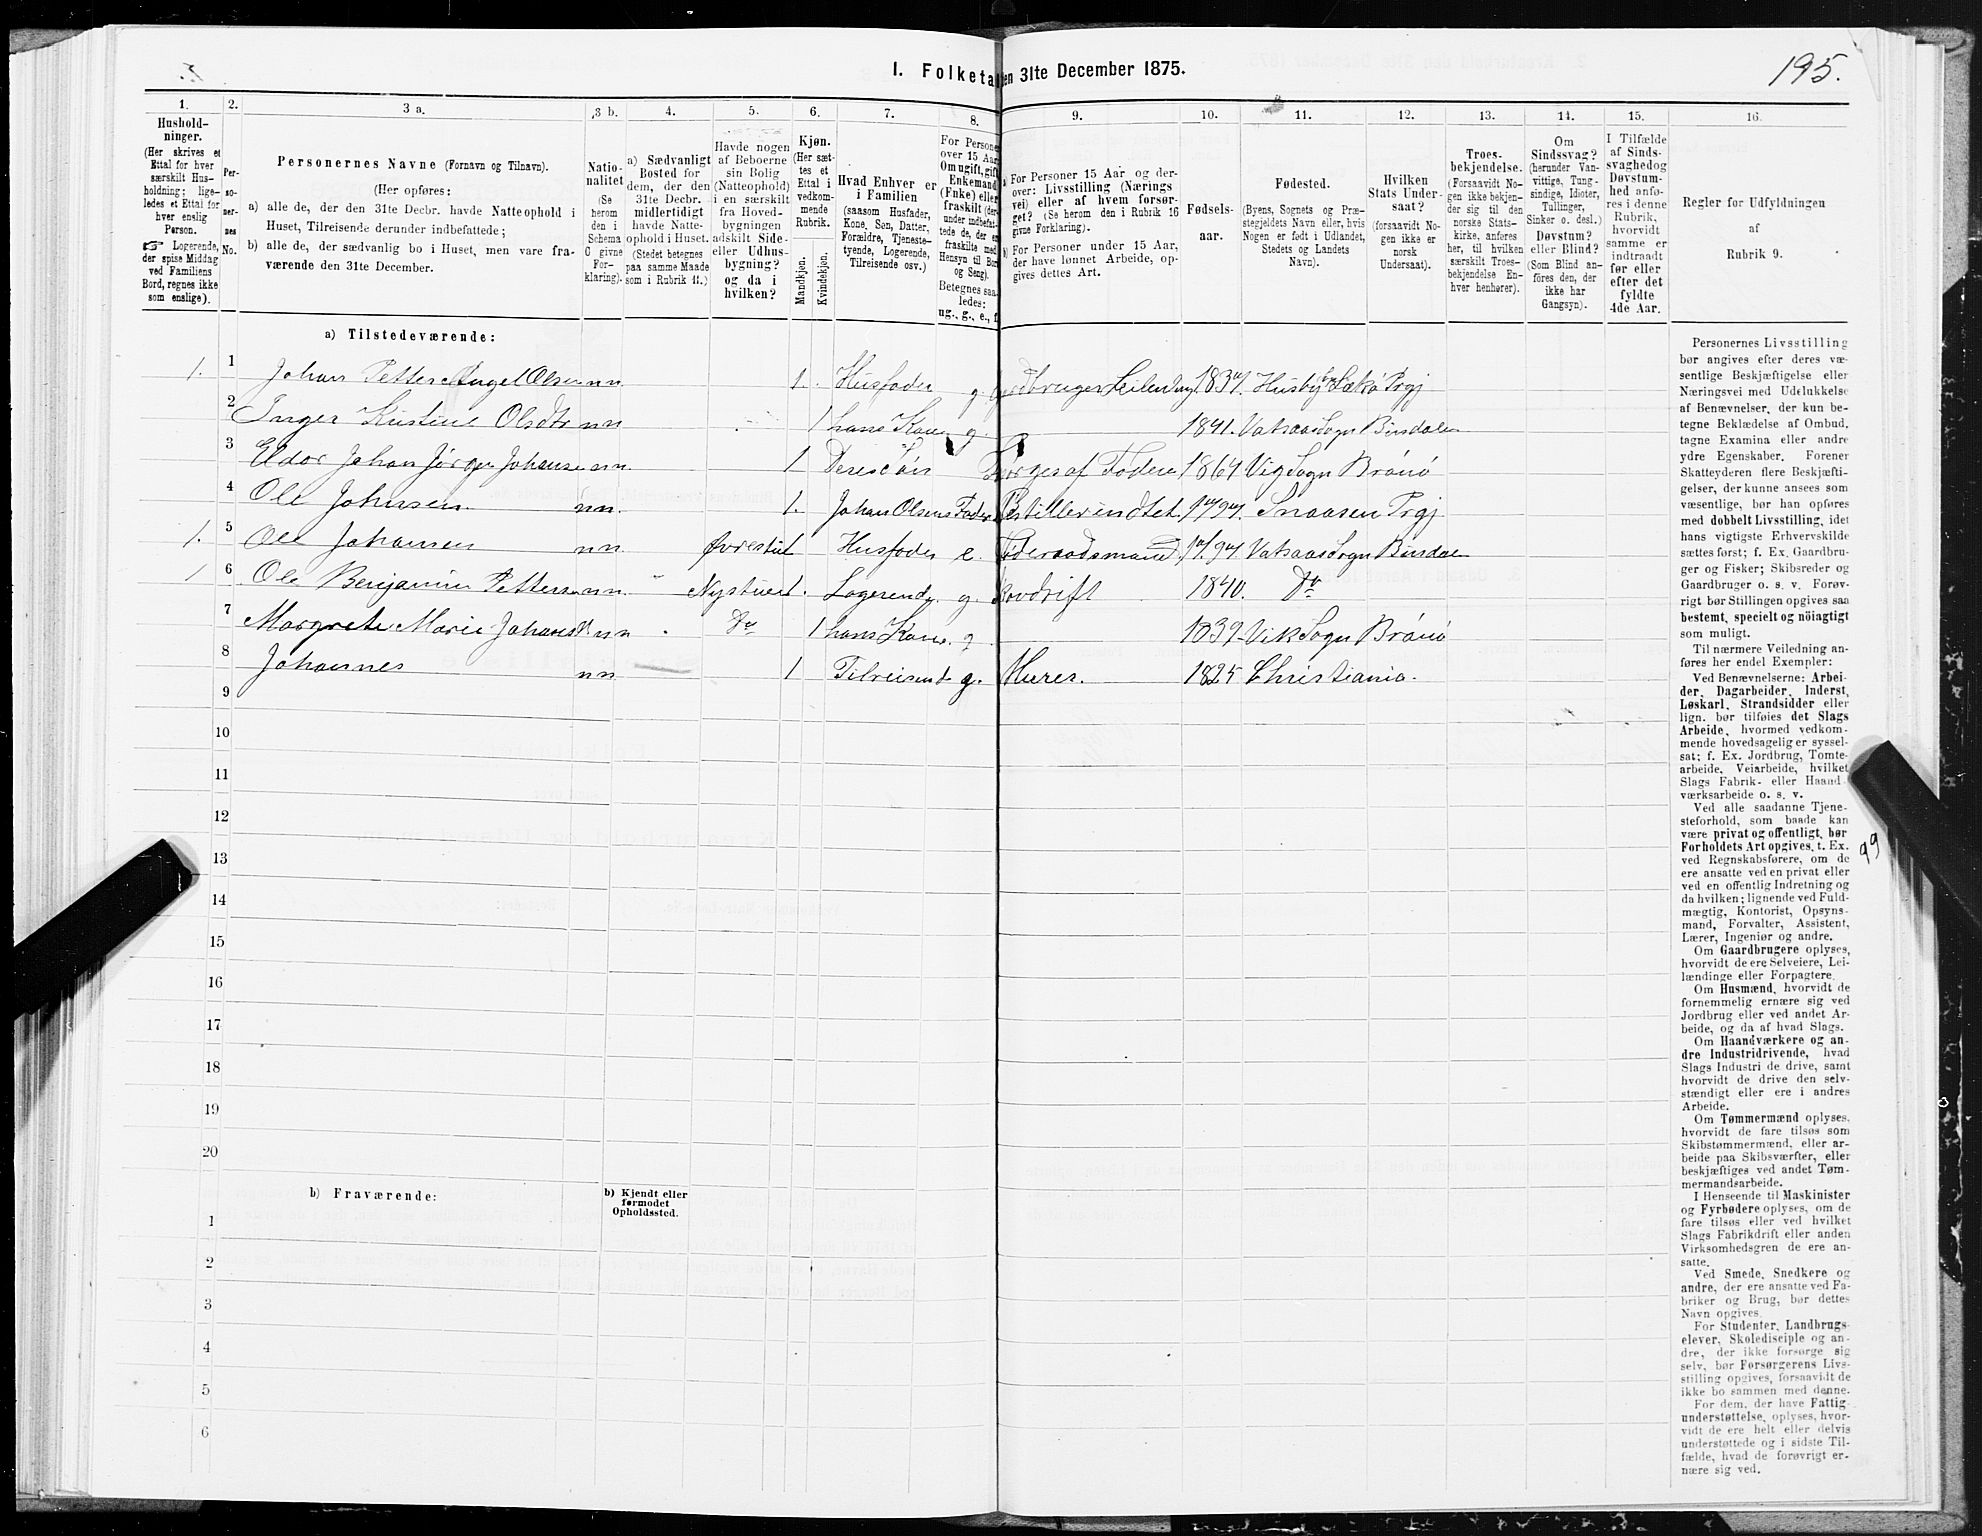 195.
1. Folketa en 31te December 1875.
1. 2. 3 a. 3 b. 4. 5. 6. 7. 8. 9. 10. 11. 12. 13. 14. 15. 16.
Hushold-
ninger.
(Her skrives et
Ettal for hver
særskilt Hus-
holdning; lige-
ledes et Ettal for
hver enslig
Person.
☞ Logerende,
der spise Middag
ved Familiens
Bord, regnes ikke
som enslige).
Per-
so-
ner-
nes
No.
Personernes Navne (Fornavn og Tilnavn).
(Her opføres:
a) alle de, der den 31te Decbr. havde Natteophold i
Huset, Tilreisende derunder indbefattede;
b) alle de, der sædvanlig bo i Huset, men vare fra-
værende den 31te December.
Natio-
nalitet
(Se
herom
den i
Schema
6 givne
For-
klaring).
a) Sædvanligt
Bosted for
dem, der den
31te Decbr.
midlertidigt
havde Natte-
ophold i Huset.
(Stedet betegnes
paa samme Maade
som i Rubrik 11.)
Havde nogen
af Beboerne
sin Bolig
(Natteophold)
i en særskilt
fra Hoved-
bygningen
adskilt Side-
eller Udhus-
bygning?
og da i
hvilken?
Kjøn.
(Her sæt-
tes et
Ettal i
vedkom-
mende
Rubrik.
Mandkjøn.
Kvindekjøn.
Hvad Enhver er
i Familien
(saasom Husfader,
Kone, Søn, Datter,
Forældre, Tjeneste-
tyende, Logerende,
Tilreisende osv.)
For Persone
over 15 Aar
Om ugift, gift
Enkemand
(Enke) eller
fraskilt (der-
under indbefat-
tede de, der e
fraskilte med
Hensyn til Bor
og Seng).
Betegnes saa
ledes:
ug., g., e., f.
a For Personer 15 Aar og der-
over: Livsstilling (Nærings
vei) eller af hvem forsør-
get? (Se herom den i Rubrik 16
givne Forklaring).
b) For Personer under 15 Aar,
der have lønnet Arbeide, op-
gives dettes Art.
Fødsels-
aar.
Fødested.
(Byens, Sognets og Præ-
stegjeldets Navn eller, hvis
Nogen er født i Udlandet,
Stedets og Landets
Navn).
Hvilken
Stats Under-
saat?
(forsaavidt No-
gen ikke er
norsk
Undersaat).
Troes-
bekjendelse.
(Forsaavidt No-
gen ikke bekjen-
der sig til den
norske Stats-
kirke, anføres
her, til hvilken
særskilt Troes-
bekjendelse En-
hver henhører).
Om
Sindssvag?
(herunder Van-
vittige, Tung-
sindige, Idioter,
Tullinger,
Sinker o. desl.)
Døvstum?
eller Blind?
(Som Blind an-
føres den, der
ikke har
Gangsyn).
I Tilfælde
af Sinds-
svaghed og
Døvstum-
hed anfø-
res i denne
Rubrik,
hvorvidt
samme er
indtraadt
før eller
efter det
fyldte
4de Aar.
Regler for Udfyldningen
af
Rubrik 9.
a) Tilstedeværende:
1. 1 Johan Petter Angel Olsen nn 1. Husfader g Gardbruger Leilending 1834. Husby Lekø Prgj
2 Inger Kristine Olsdtr nn 1 hans Kone g 1841. Vatsaas Sogn Bindalen
3 Eldor Johan Jørgen Johansen nn. 1 Deres Søn Forsørges af Faderen 1864 Vig Sogn Brønø
4 Ole Johnsen nn. 1. Johan Olsens Fader 1794. Snaasen Prgj
1. 5 Ole Johansen nn. Øvrestue 1 Husfader e. Føderaadsmand 1794. Vatsaas Sogn Bindalen
1 6 Ole Benjamin Pettersen nn. Nystuen 1. Logerende g. Jorddrift 1840. Do
7 Margrete Marie Johansdtr nn Do 1 hans Kone. g 1839. Vik Sogn Brønø
8 Johannes nn 1 Tilreisende g. Murer. 1825 Christiania.
9
10
11
12
13
14
15
16
17
18
19
20
b) Fraværende:
b) Kjendt eller
formodet
Opholdssted.
1
2
3
4
5
6
Personernes Livsstilling
bør angives efter deres væ-
sentlige Beskjæftigelse eller
Næringsvei med Udelukkelse
af Benævnelser, der kun be-
tegne Beklædelse af Ombud,
tagne Examina eller andre
ydre Egenskaber. Forener
Skatteyderen flere Beskjæfti-
gelser, der kunne ansees som
væsentlige, bør han opføres
med dobbelt Livsstilling, idet
hans vigtigste Erhvervskilde
sættes først; f. Ex. Gaardbru-
ger og Fisker; Skibsreder og
Gaardbruger o. s. v. Forøv-
rigt bør Stillingen opgives saa
bestemt, specielt og nöiagtigt
som muligt.
Til nærmere Veiledning an-
føres her endel Exempler:
Ved Benævnelserne: Arbei-
der, Dagarbeider, Inderst,
Løskarl, Strandsidder eller
lign. bør tilføies det Slags
Arbeide, hvormed vedkom-
mende hovedsagelig er syssel-
sat; f. Ex. Jordbrug, Tomte-
arbeide, Veiarbeide, hvilket
Slags Fabrik- eller Haand-
værksarbeide o. s. v.
Ved alle saadanne Tjene-
steforhold, som baade kan
være privat og offentligt, bør
Forholdets Art opgives, t. Ex.
ved Regnskabsførere, om de
ere ansatte ved en privat eller
ved en offentlig Indretning og
da hvilken; lignende ved Fuld-
mægtig, Kontorist, Opsyns-
mand, Forvalter, Assistent,
Lærer, Ingeniør og andre.
Om Gaardbrugere oplyses,
hvorvidt de ere Selveiere, Lei-
lændinge eller Forpagtere.
Om Husmænd, hvorvidt de
fornemmelig ernære sig ved
Jordbrug eller ved andet Ar-
beide, og da af hvad Slags.
Om Haandværkere og an-
dre Industridrivende, hvad
Slags Industri de drive, samt
hvorvidt de drive den selv-
stændigt eller ere i andres
Arbeide.
Om Tømmermænd oplyses,
hvorvidt de fare tilsøs som
Skibstømmermænd, eller ar-
beide paa Skibsværfter, eller
beskjæftiges ved andet Tøm-
mermandsarbeide.
I Henseende til Maskinister
og Fyrbødere oplyses, om de
fare tilsøs eller ved hvilket
Slags Fabrikdrift eller anden
Virksomhedsgren de ere an-
satte.
Ved Smede, Snedkere og
andre, der ere ansatte ved Fa-
briker og Brug, bør dettes
Navn opgives.
For Studenter, Landbrugs-
elever, Skoledisciple og an-
dre, der ikke forsørge sig
selv, bør Forsørgerens Livs-
stilling opgives, forsaavidt de
ikke bo sammen med denne.
For dem, der have Fattig-
understøttelse, oplyses, hvor-
vidt de ere helt eller delvis
understøttede og i sidste Til-
fælde, hvad de forøvrigt er-
nære sig ved.
99